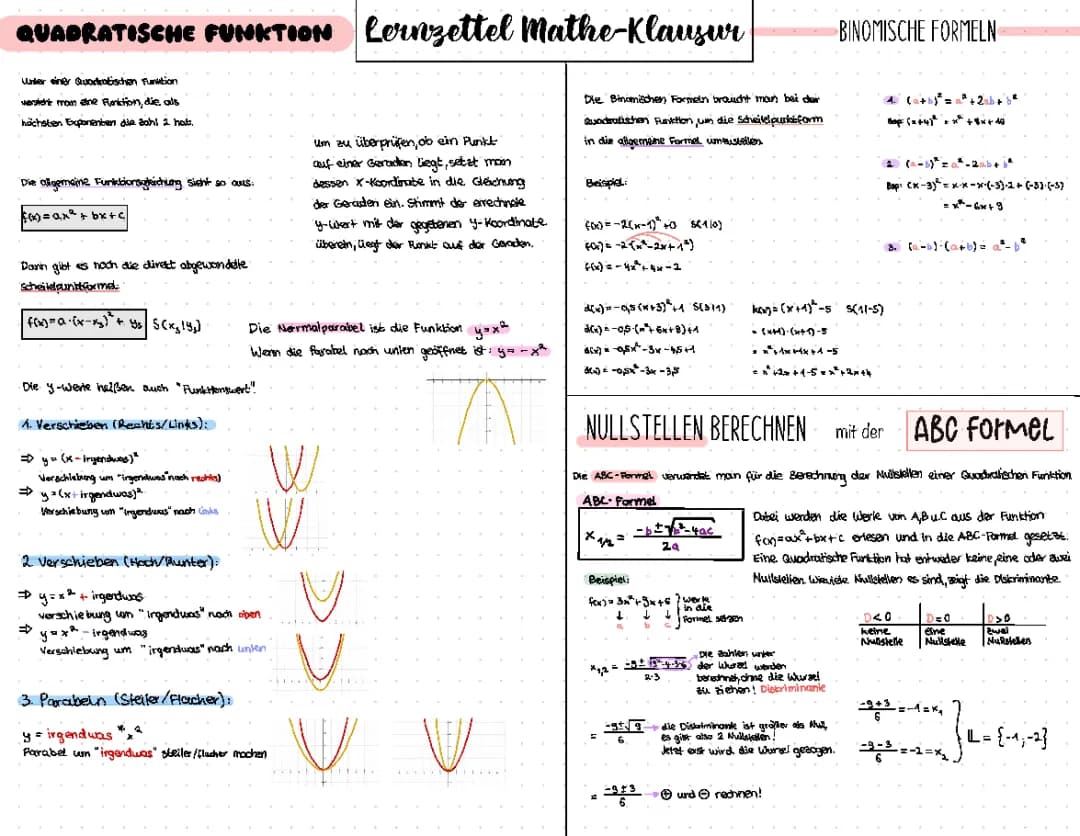 QUADRATISCHE FUNKTION
Lernzettel Mathe-Klausur
BINOMISCHE FORMELN
Unter einer Quadratischen Funktion
versteht man eine Funktion, die als
höchsten Exponenten die Zahl 2 hat.
Die allgemeine Funktionsgleichung sieht so aus:
f(x)=ax²+bx+c
Dann gibt es noch die direkt abgewandelte
Scheitelpunktformel:
f(x)=a·(x-xₛ)²+yₛ S(xₛ|yₛ)
Um zu überprüfen, ob ein Punkt
auf einer Geraden liegt, setzt man
dessen x-Koordinate in die Gleichung
der Geraden ein. Stimmt der errechnete
y-Wert mit der gegebenen y-Koordinate
überein, liegt der Punkt auf der Geraden.
Die Normalparabel ist die Funktion y=x²
Wenn die Parabel nach unten geöffnet ist: y=-x²
Die y-Werte heißen auch "Funktionswert".
1. Verschieben (Rechts/Links):
⇒ y=(x-irgendwas)²
Verschiebung um "irgendwas" nach rechts)
⇒ y=(x+irgendwas)²
Verschiebung um "irgendwas" nach links
2. Verschieben (Hoch/Runter):
⇒ y=x²+irgendwas
Verschiebung um "irgendwas" nach oben
⇒ y=x²-irgendwas
Verschiebung um "irgendwas" nach unten
3. Parabeln (Steiler/Flacher):
y=irgendwas*x²
Parabel um "irgendwas" steiler/flacher machen
Die Binomischen Formeln braucht man bei der
quadratischen Funktion, um die Scheitelpunktsform
in die allgemeine Formel umzustellen.
Beispiel:
f(x)=-2(x-1)²+0 S(1|0)
f(x)=-2·(x²-2x+1²)
f(x)=-4x²+4x-2
d(x)=-0,5(x+3)²+1 S(3|1)
d(x)=-0,5·(x²+6x+9)+1
d(x)=-0,5x²-3x-4,5+1
d(x)=-0,5x²-3x-3,5
k(x)=(x+1)²-5 S(1|-5)
=(x+1)·(x+1)-5
=x²+1x+1x+1-5
=x²+2x+1-5=x²+2x+4
1. (a+b)²=a²+2ab+b²
Bsp: (x+4)²=x²+8x+16
2. (a-b)²=a²-2ab+b²
Bsp: (x-3)²=x·x-x·(-3)·2+(-3)·(-3)
=x²-6x+9
3. (a-b)·(a+b)=a²-b²
NULLSTELLEN BERECHNEN mit der ABC FORMEL
Die ABC-Formel verwendet man für die Berechnung der Nullstellen einer Quadratischen Funktion
ABC-Formel
x₁/₂=(-b±√b²-4ac)/2a
Dabei werden die Werte von A,B u.C aus der Funktion
f(x)=ax²+bx+c erlesen und in die ABC-Formel gesetzt.
Eine Quadratische Funktion hat entweder keine, eine oder zwei
Nullstellen. Wieviele Nullstellen es sind, zeigt die Diskriminante.
Beispiel:
f(x)=3x²+9x+6
a b c
Werte
in die
Formel setzen
D<0 D=0 D>0
keine eine zwei
Nullstelle Nullstelle Nullstellen
x₁,₂=(-9±√9²-4·3·6)/2·3
Die Zahlen unter
der Wurzel werden
berechnet, ohne die Wurzel
zu ziehen! Diskriminante
=(-9±√9)/6
die Diskriminante ist größer als Null,
es gibt also 2 Nullstellen!
Jetzt erst wird die Wurzel gezogen.
=(-9±3)/6
⊕ und ⊖ rechnen!
(-9+3)/6=-1=x₁
(-9-3)/6=-2=x₂
𝕃={-1,-2}